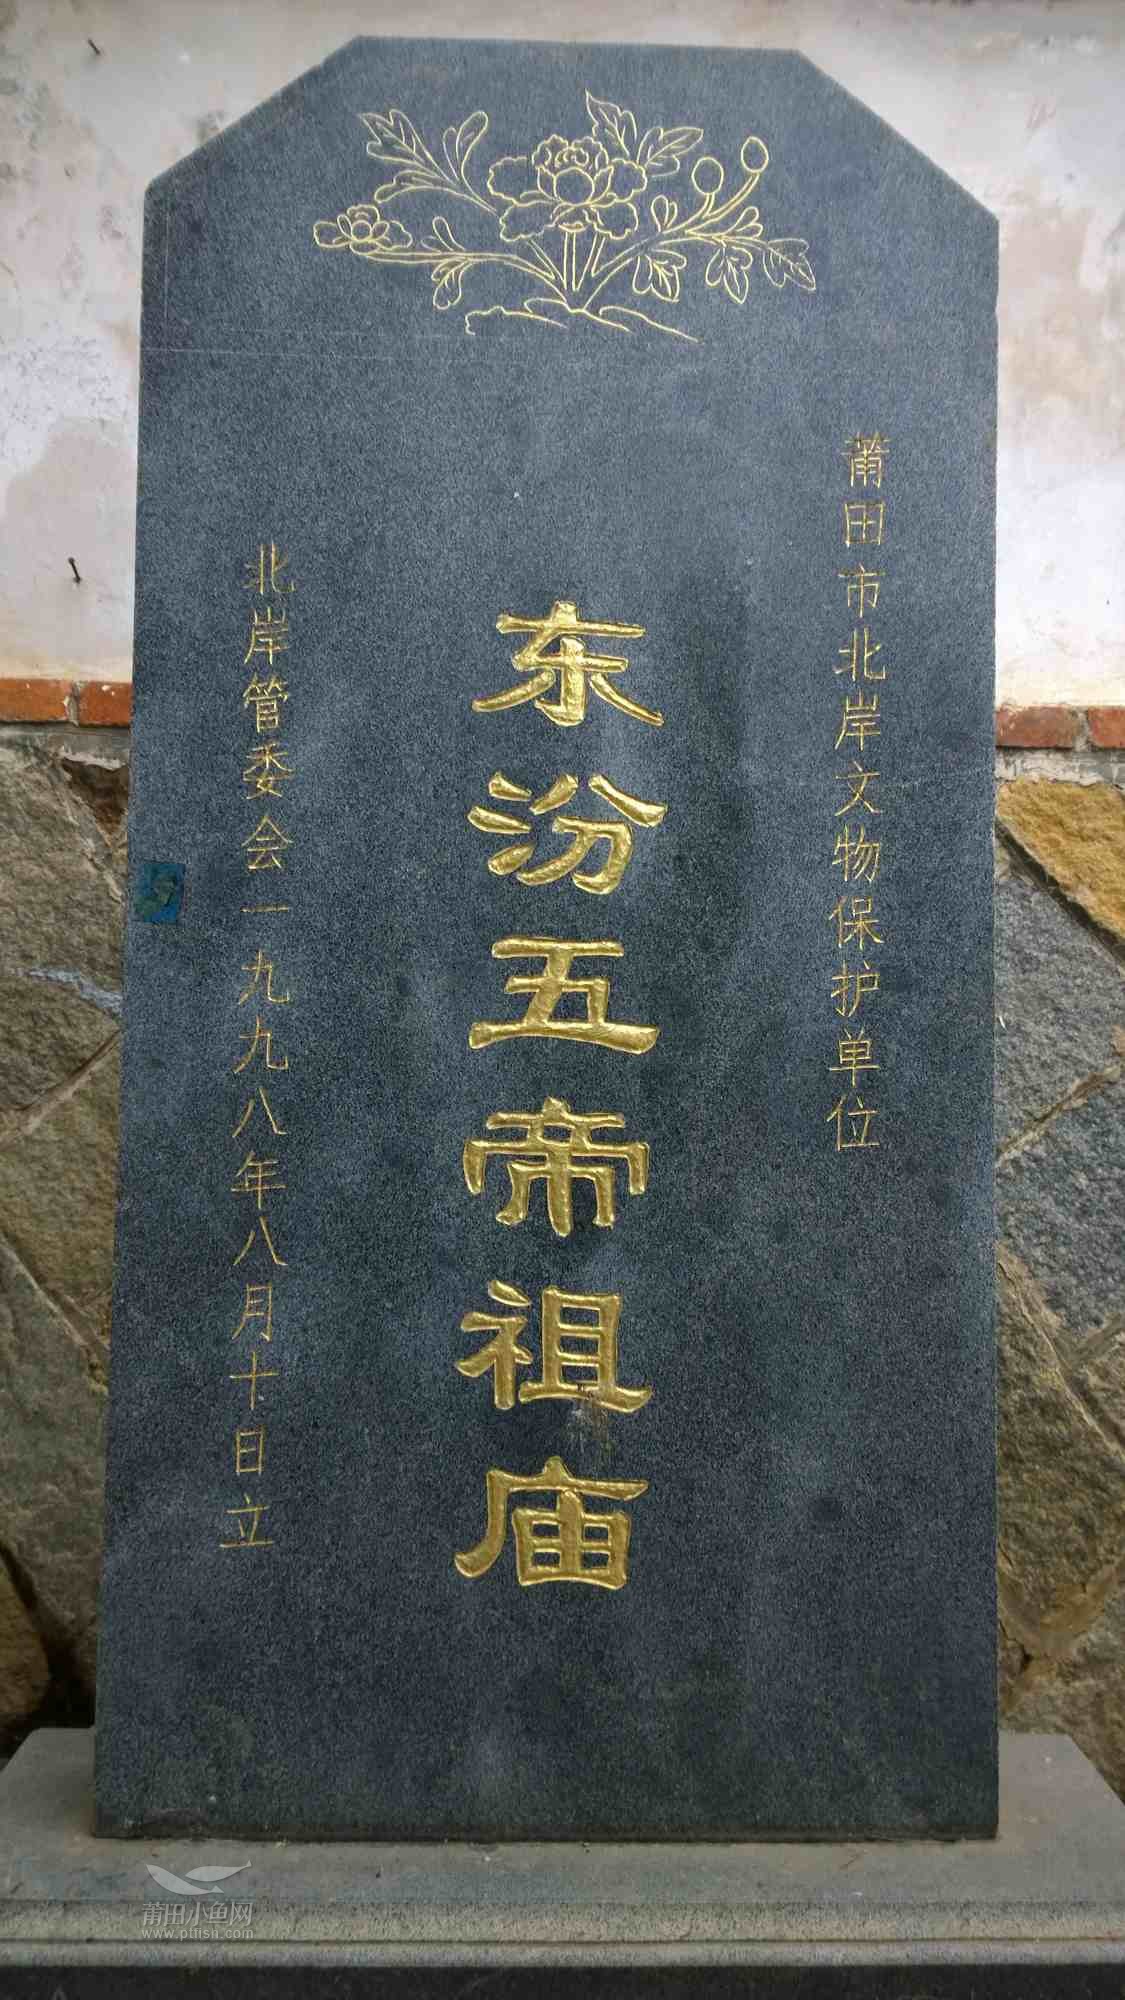 莆田市北岸文物保护单位
东汾五帝祖庙
北岸管委会一九九八年八月十日立
莆田小鱼网
www.pfish.com